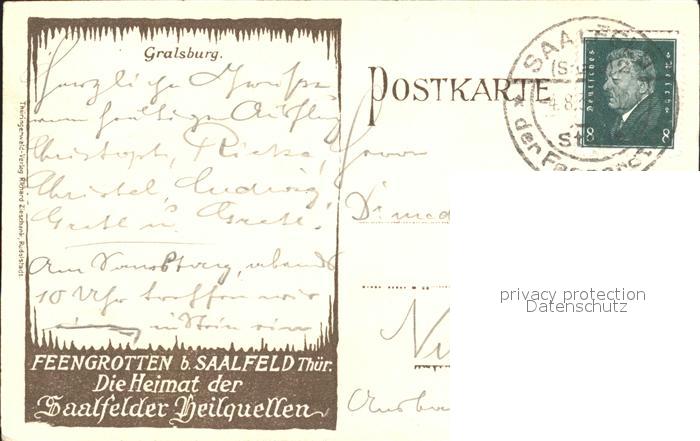 Gralsburg.
Herzliche Grüße
vom heutigen Ausflug
Christoph,
Christel, Ludwig,
Gretl u.
Am Samstag, abends
10 Uhr treffen wir
in Stein ein
Thüringerwald-Verlag Richard Zieschank, Rudolstadt.
FEENGROTTEN b. SAALFELD Thür.
Die Heimat der
Saalfelder Heilquellen
POSTKARTE
SAALFELD
(Saale)
4.8.3
St
der Feengrot
Deutsches Reich
8 8
Herrn
Dr. med
privacy protection
Datenschutz